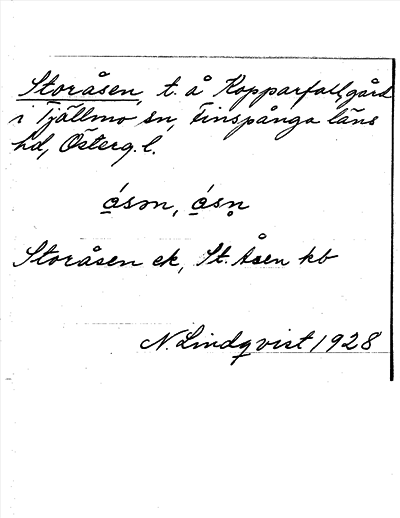 Storåsen, t. å Kopparfall, gård
i Tjällmo sn, Finspånga läns
hd, Österg. l.
ɷ́sən, ɷ́sn̥
Storåsen ek, St. Åsen kb
N. Lindqvist 1928